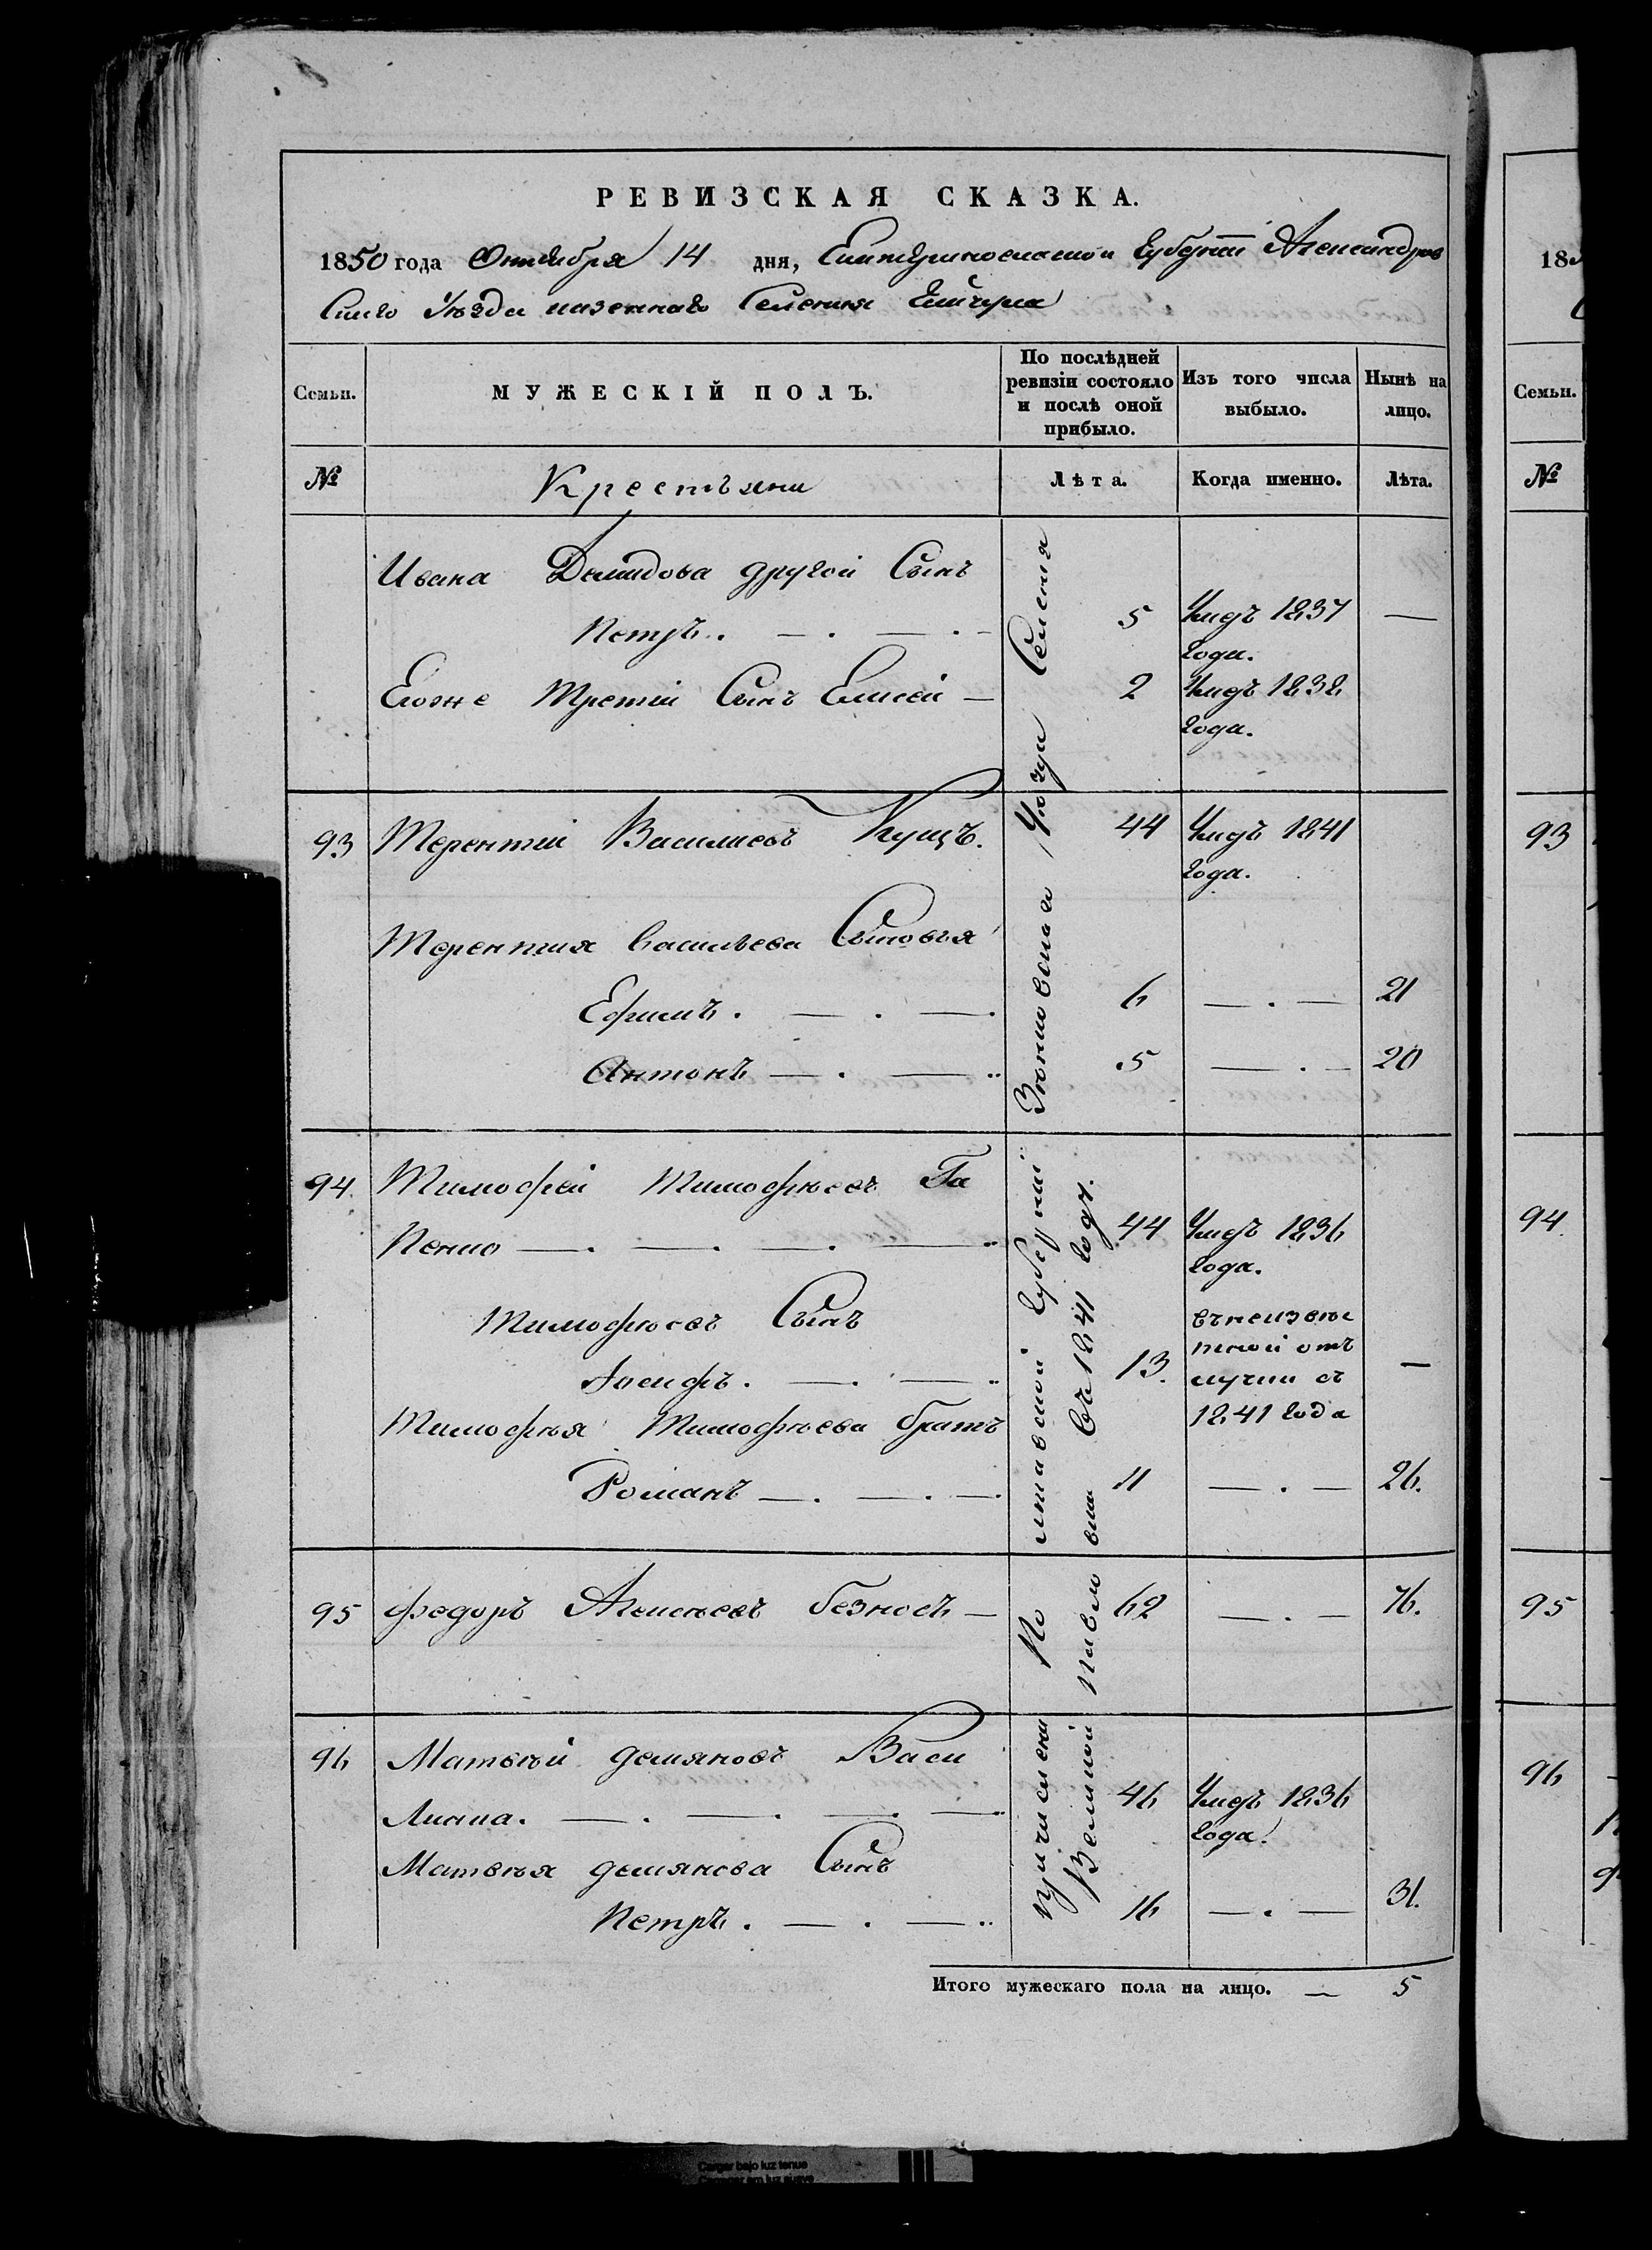 РЕВИЗСКАЯ СКАЗКА.
1850 года Октября 14 дня, Екатеринославской Губерніи Александров
скаго Уѣзда казеннаго Селенія
Семьи.
МУЖЕСКІЙ ПОЛЪ.
По послѣдней ревизіи состояло и послѣ оной прибыло.
Изъ того числа выбыло.
Нынѣ на лицо.
№
Крестьяни
Лѣта.
Когда именно.
Лѣта.
Ивана Демидова другой Сынъ
Петръ. — . — . — 5 Умеръ 1837 года. —
Егоже Третій Сынъ Елисей — 2 Умеръ 1838 года.
93 Терентій Васильевъ Кущъ. 44 Умеръ 1841 года.
Терентія Васильева Сыновья
Ефимъ. — . — . 6 — . — 21
Антонъ — . — .. 5 — . — 20
94. Тимофей Тимофѣевъ Га
Пенко — . — . — . — .. 44 Умеръ 1836 года.
Тимофѣевъ Сынъ
Іосифъ. — . — .. 13. въ неизвѣс
тной от
лучки съ
1841 года —
Тимофѣя Тимофѣева братъ
Романъ — . — . — . 11 — . — 26.
95 Федоръ Алексѣевъ безносъ — 62 — . — 76.
96 Матвѣй демяновъ Васи
Линка. — . — . — . — .. 46 Умеръ 1836 года.
Матвѣя демянова Сынъ
Петръ. — . — .. 16 — . — 31.
причислены По лтавской Губерніи Зѣньковскаго Селенія
въ 1841 годъ.
Итого мужескаго пола на лицо. — 5
18
Семьи.
№
93
94
95
96